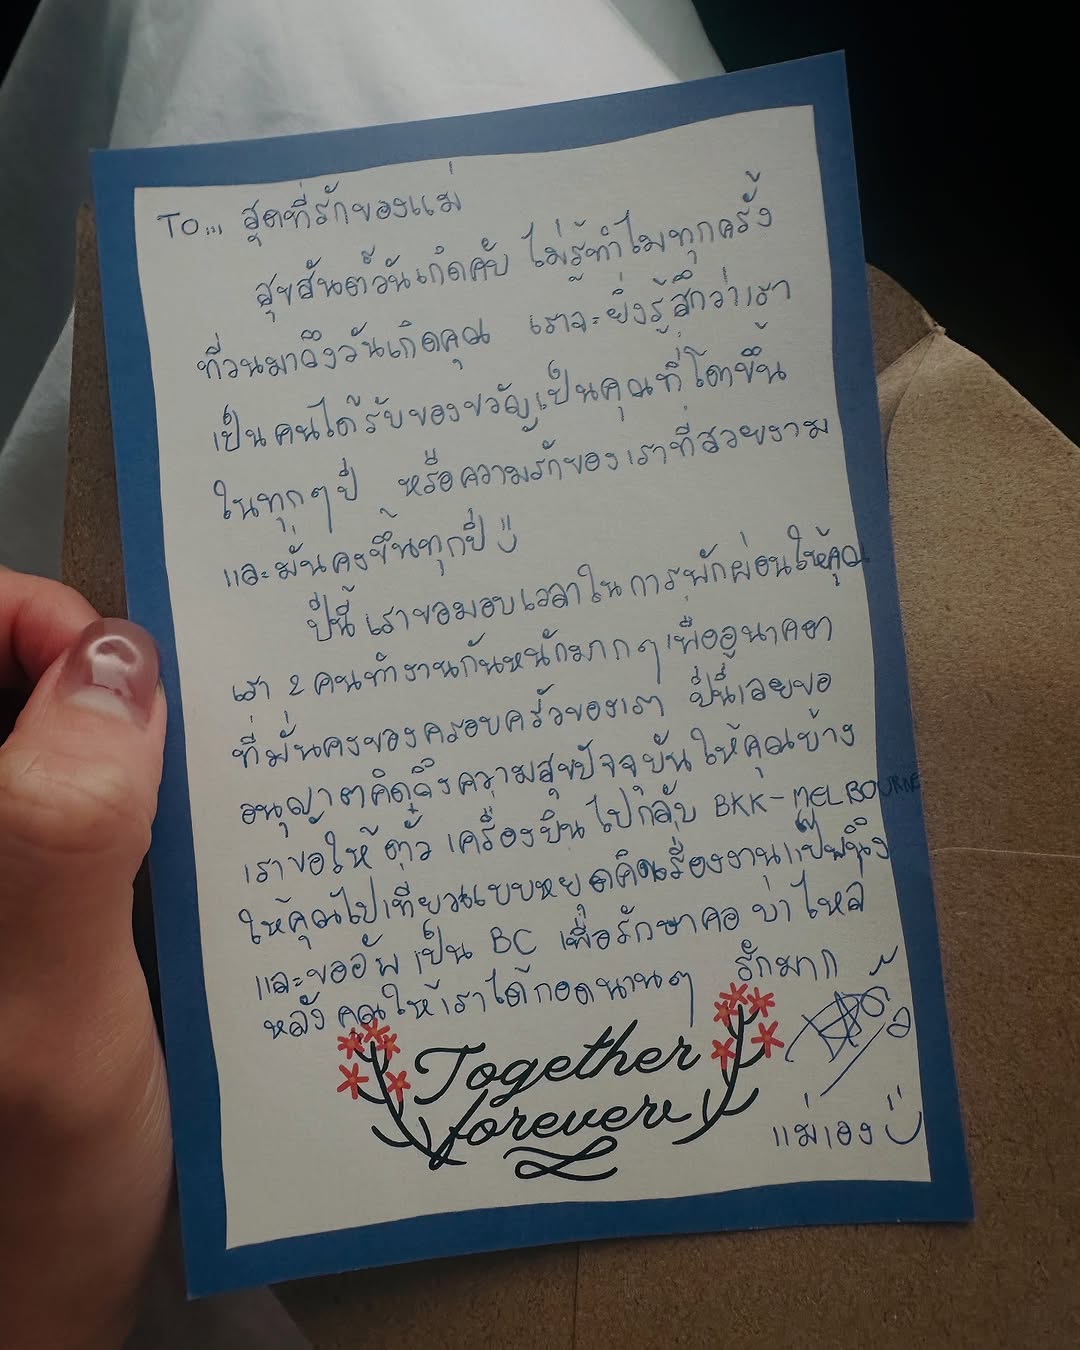 TO... สุดที่รักของแม่
สุขสันต์วันเกิดคับ ไม่รู้ทำไมทุกครั้ง
ที่วนมาถึงวันเกิดคุณ เราจะยิ่งรู้สึกว่าเรา
เป็นคนได้รับของขวัญเป็นคุณที่โตขึ้น
ในทุกๆปี หรือความรักของเราที่สวยงาม
และมั่นคงขึ้นทุกปี
ปีนี้เราขอมอบเวลาในการพักผ่อนให้คุณ
เรา 2 คนทำงานกันหนักมากๆเพื่ออนาคต
ที่มั่นคงของครอบครัวของเรา ปีนี้เลยขอ
อนุญาตคิดถึงความสุขปัจจุบันให้คุณบ้าง
เราขอให้ตั๋วเครื่องบินไปกลับ BKK-MELBOURNE
ให้คุณไปเที่ยวแบบหยุดคิดเรื่องงานแป๊ปนึง
และขออัพเป็น BC เพื่อรักษาคอ บ่า ไหล่
หลัง คุณให้เราได้กอดนานๆ รักมาก
Together
forever
แม่เอง